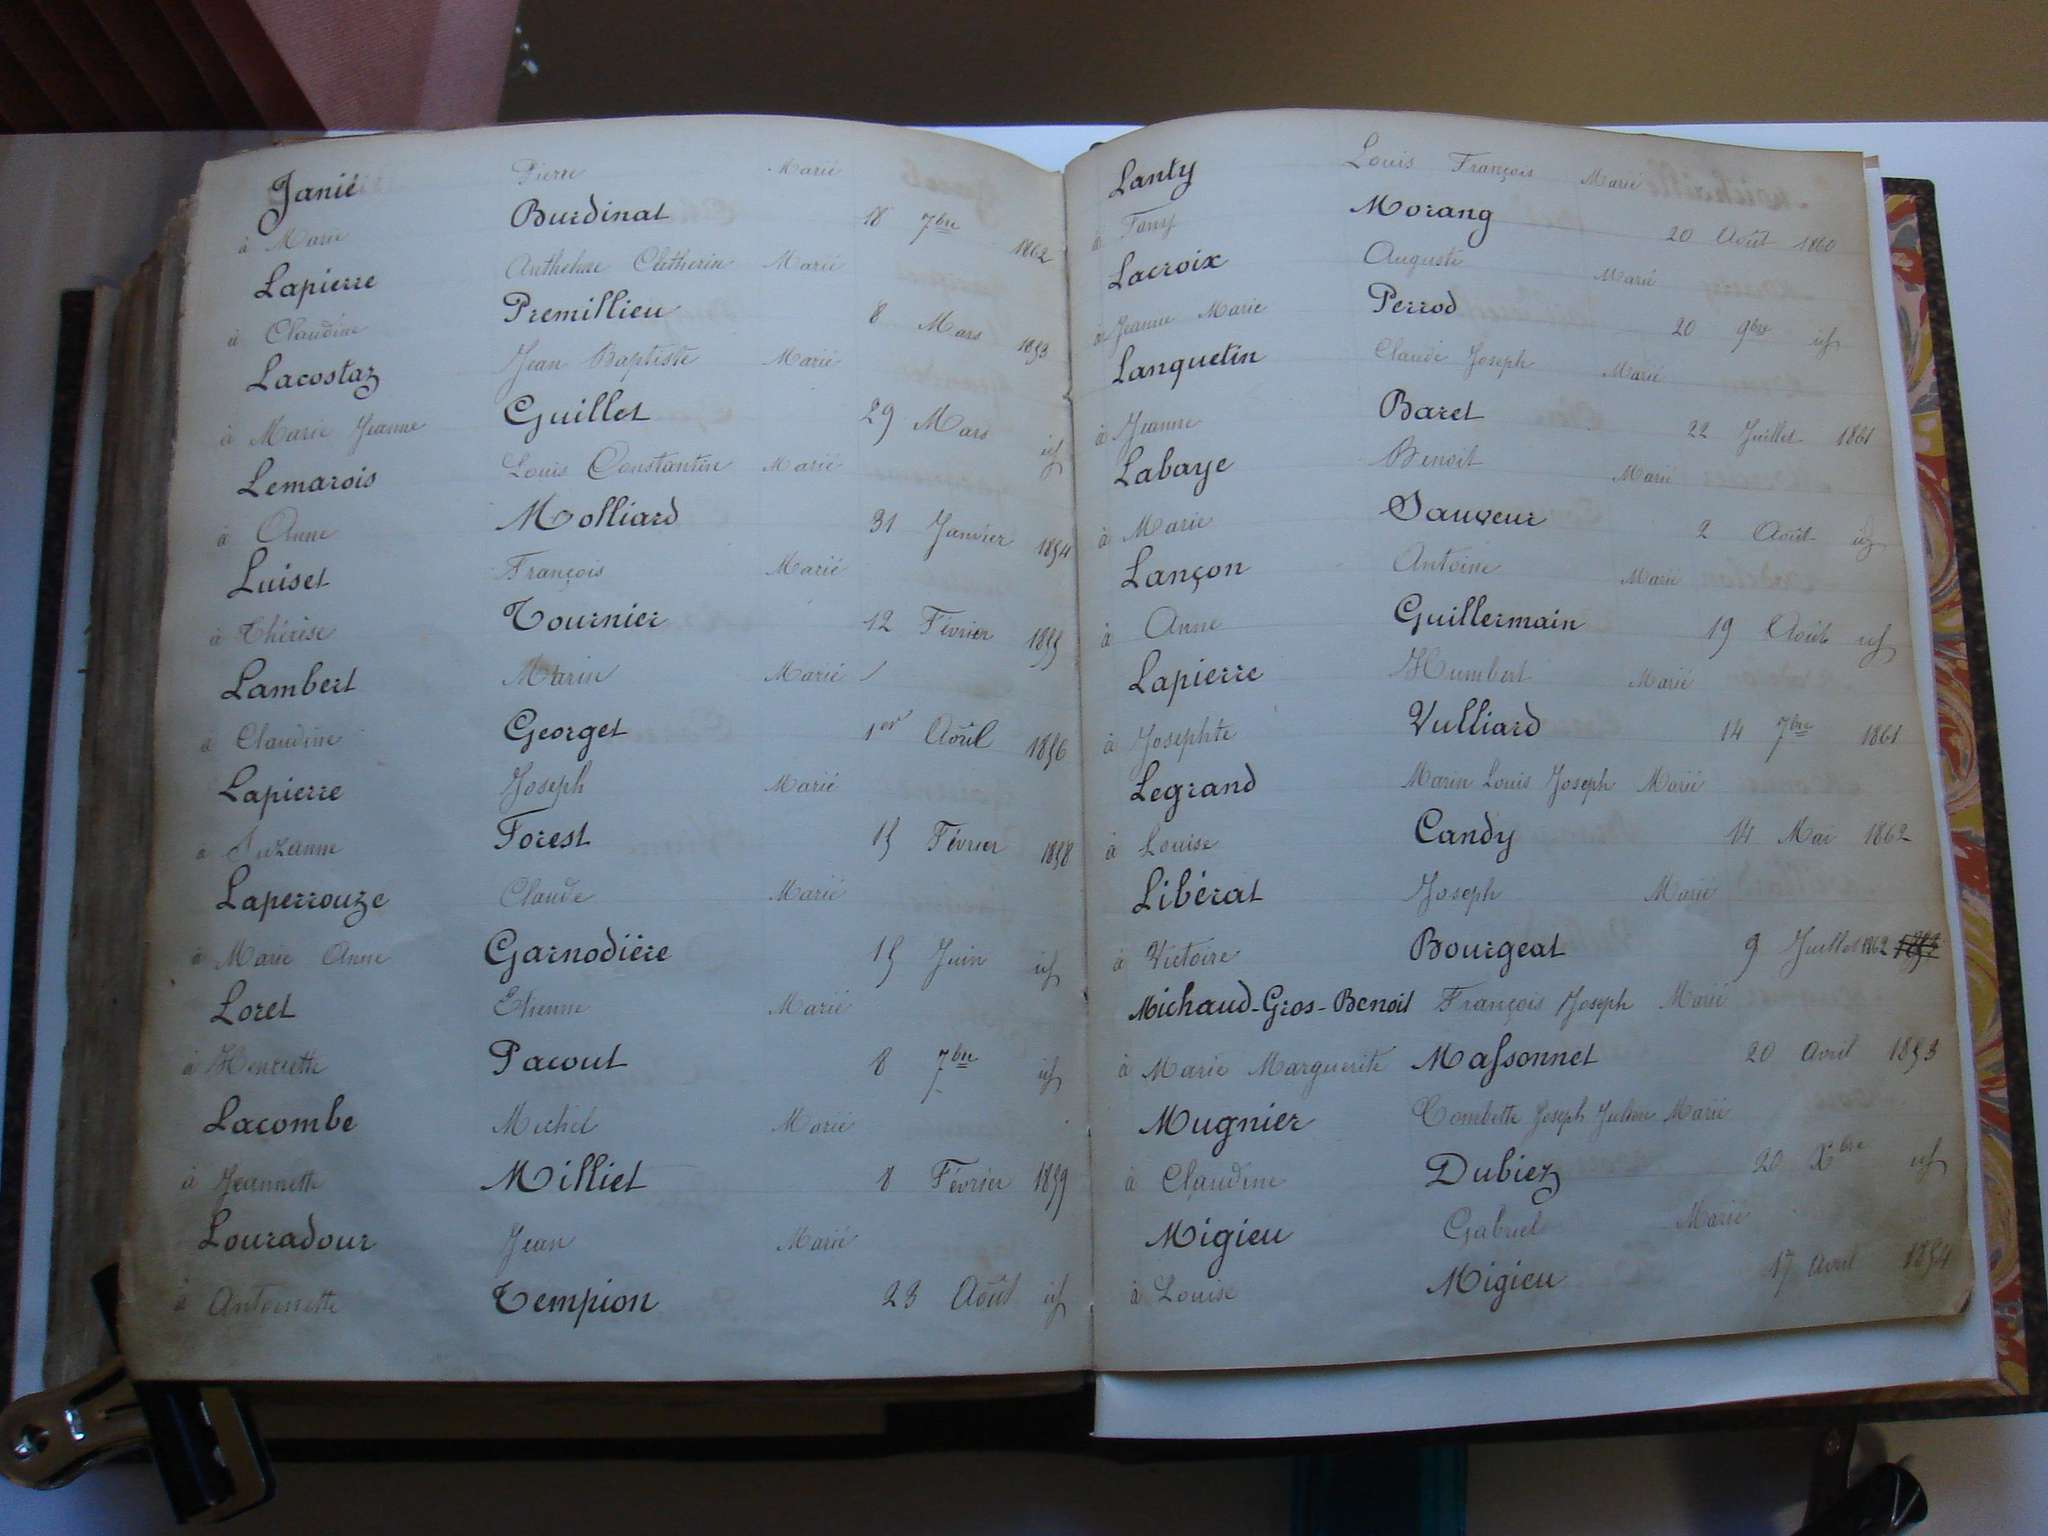 Janié Pierre Marié
à Marie Burdinat 18 7bre 1862
Lapierre Anthelme Marié
à Claudine Premillieu 8 Mars 1853
Lacostaz Jean Baptiste Marié
à Marie Jeanne Guillet 29 Mars id
Lemarois Louis Constantin Marié
à Anne Molliard 31 Janvier 1854
Luiset François Marié
à Thérèse Tournier 12 Février 1855
Lambert Marin Marié
à Claudine Georget 1er Août 1856
Lapierre Joseph Marié
à Suzanne Forest 15 Février 1858
Laperrouze Claude Marié
à Marie Anne Garnodière 15 Juin id
Loret Etienne Marié
à Henriette Pacout 8 7bre id
Lacombe Michel Marié
à Jeannette Milliet 8 Février 1859
Louradour Jean Marié
à Antoinette Tempion 23 Août id
Lanty Louis François Marié
à Fany Morang 20 Août 1860
Lacroix Auguste Marié
à Jeanne Marie Perrod 20 9bre id
Languetin Claude Joseph Marié
à Jeanne Baret 22 Juillet 1861
Labaye Benoit Marié
à Marie Sauveur 2 Août id
Lançon Antoine Marié
à Anne Guillermain 19 Août id
Lapierre Humbert Marié
à Josephte Vulliard 14 7bre 1861
Legrand Marin Louis Joseph Marié
à Louise Candy 14 Mai 1862
Libérat Joseph Marié
à Victoire Bourgeat 9 Juillet 1862
Michaud-Gros-Benoit François Joseph Marié
à Marie Marguerite Massonnet 20 Avril 1853
Mugnier Combette Joseph Julien Marié
à Claudine Dubiez 20 Xbre id
Migieu Gabriel Marié
à Louise Migieu 17 Avril 1854